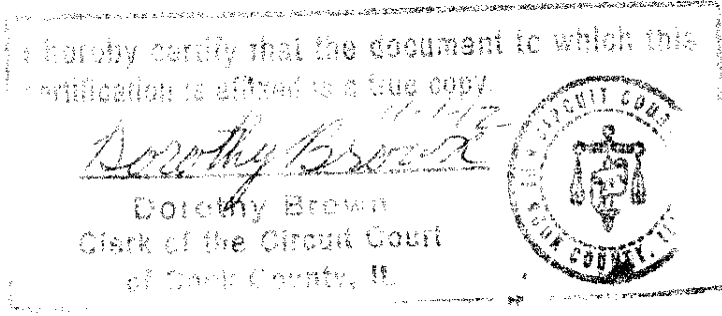 I hereby certify that the document to which this
certification is affixed is a true copy.
Dorothy Brown
Dorothy Brown
Clerk of the Circuit Court
of Cook County, IL
CIRCUIT COURT
COOK COUNTY,